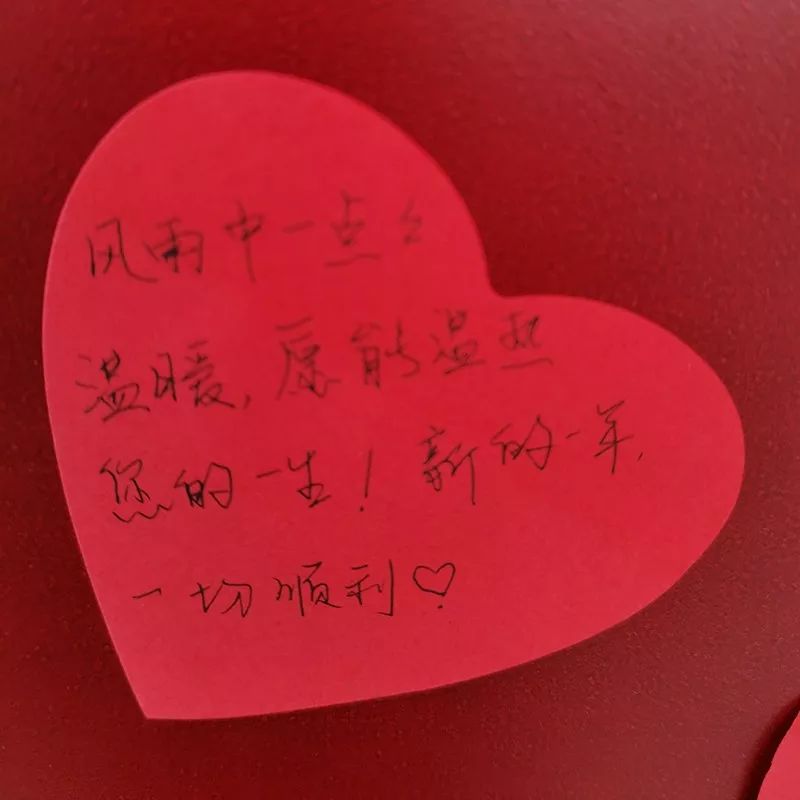 风雨中一点点
温暖,愿能温热
您的一生!新的一年,
一切顺利♡